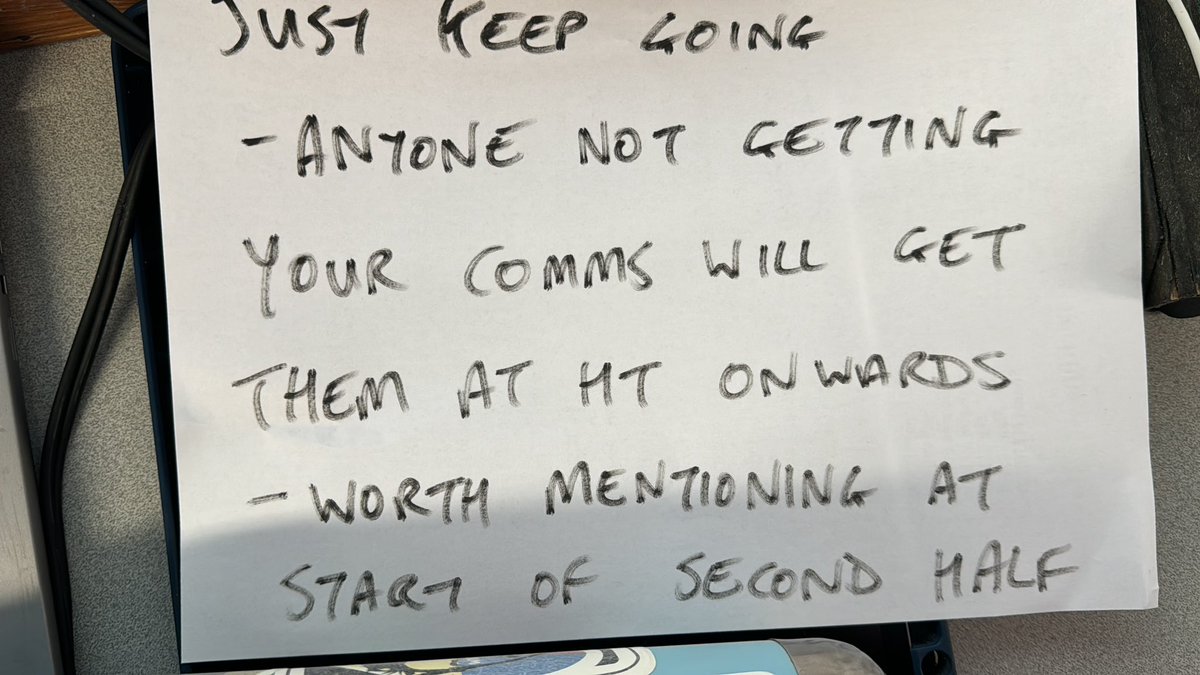 JUST KEEP GOING
- ANYONE NOT GETTING
YOUR COMMS WILL GET
THEM AT HT ONWARDS
- WORTH MENTIONING AT
START OF SECOND HALF